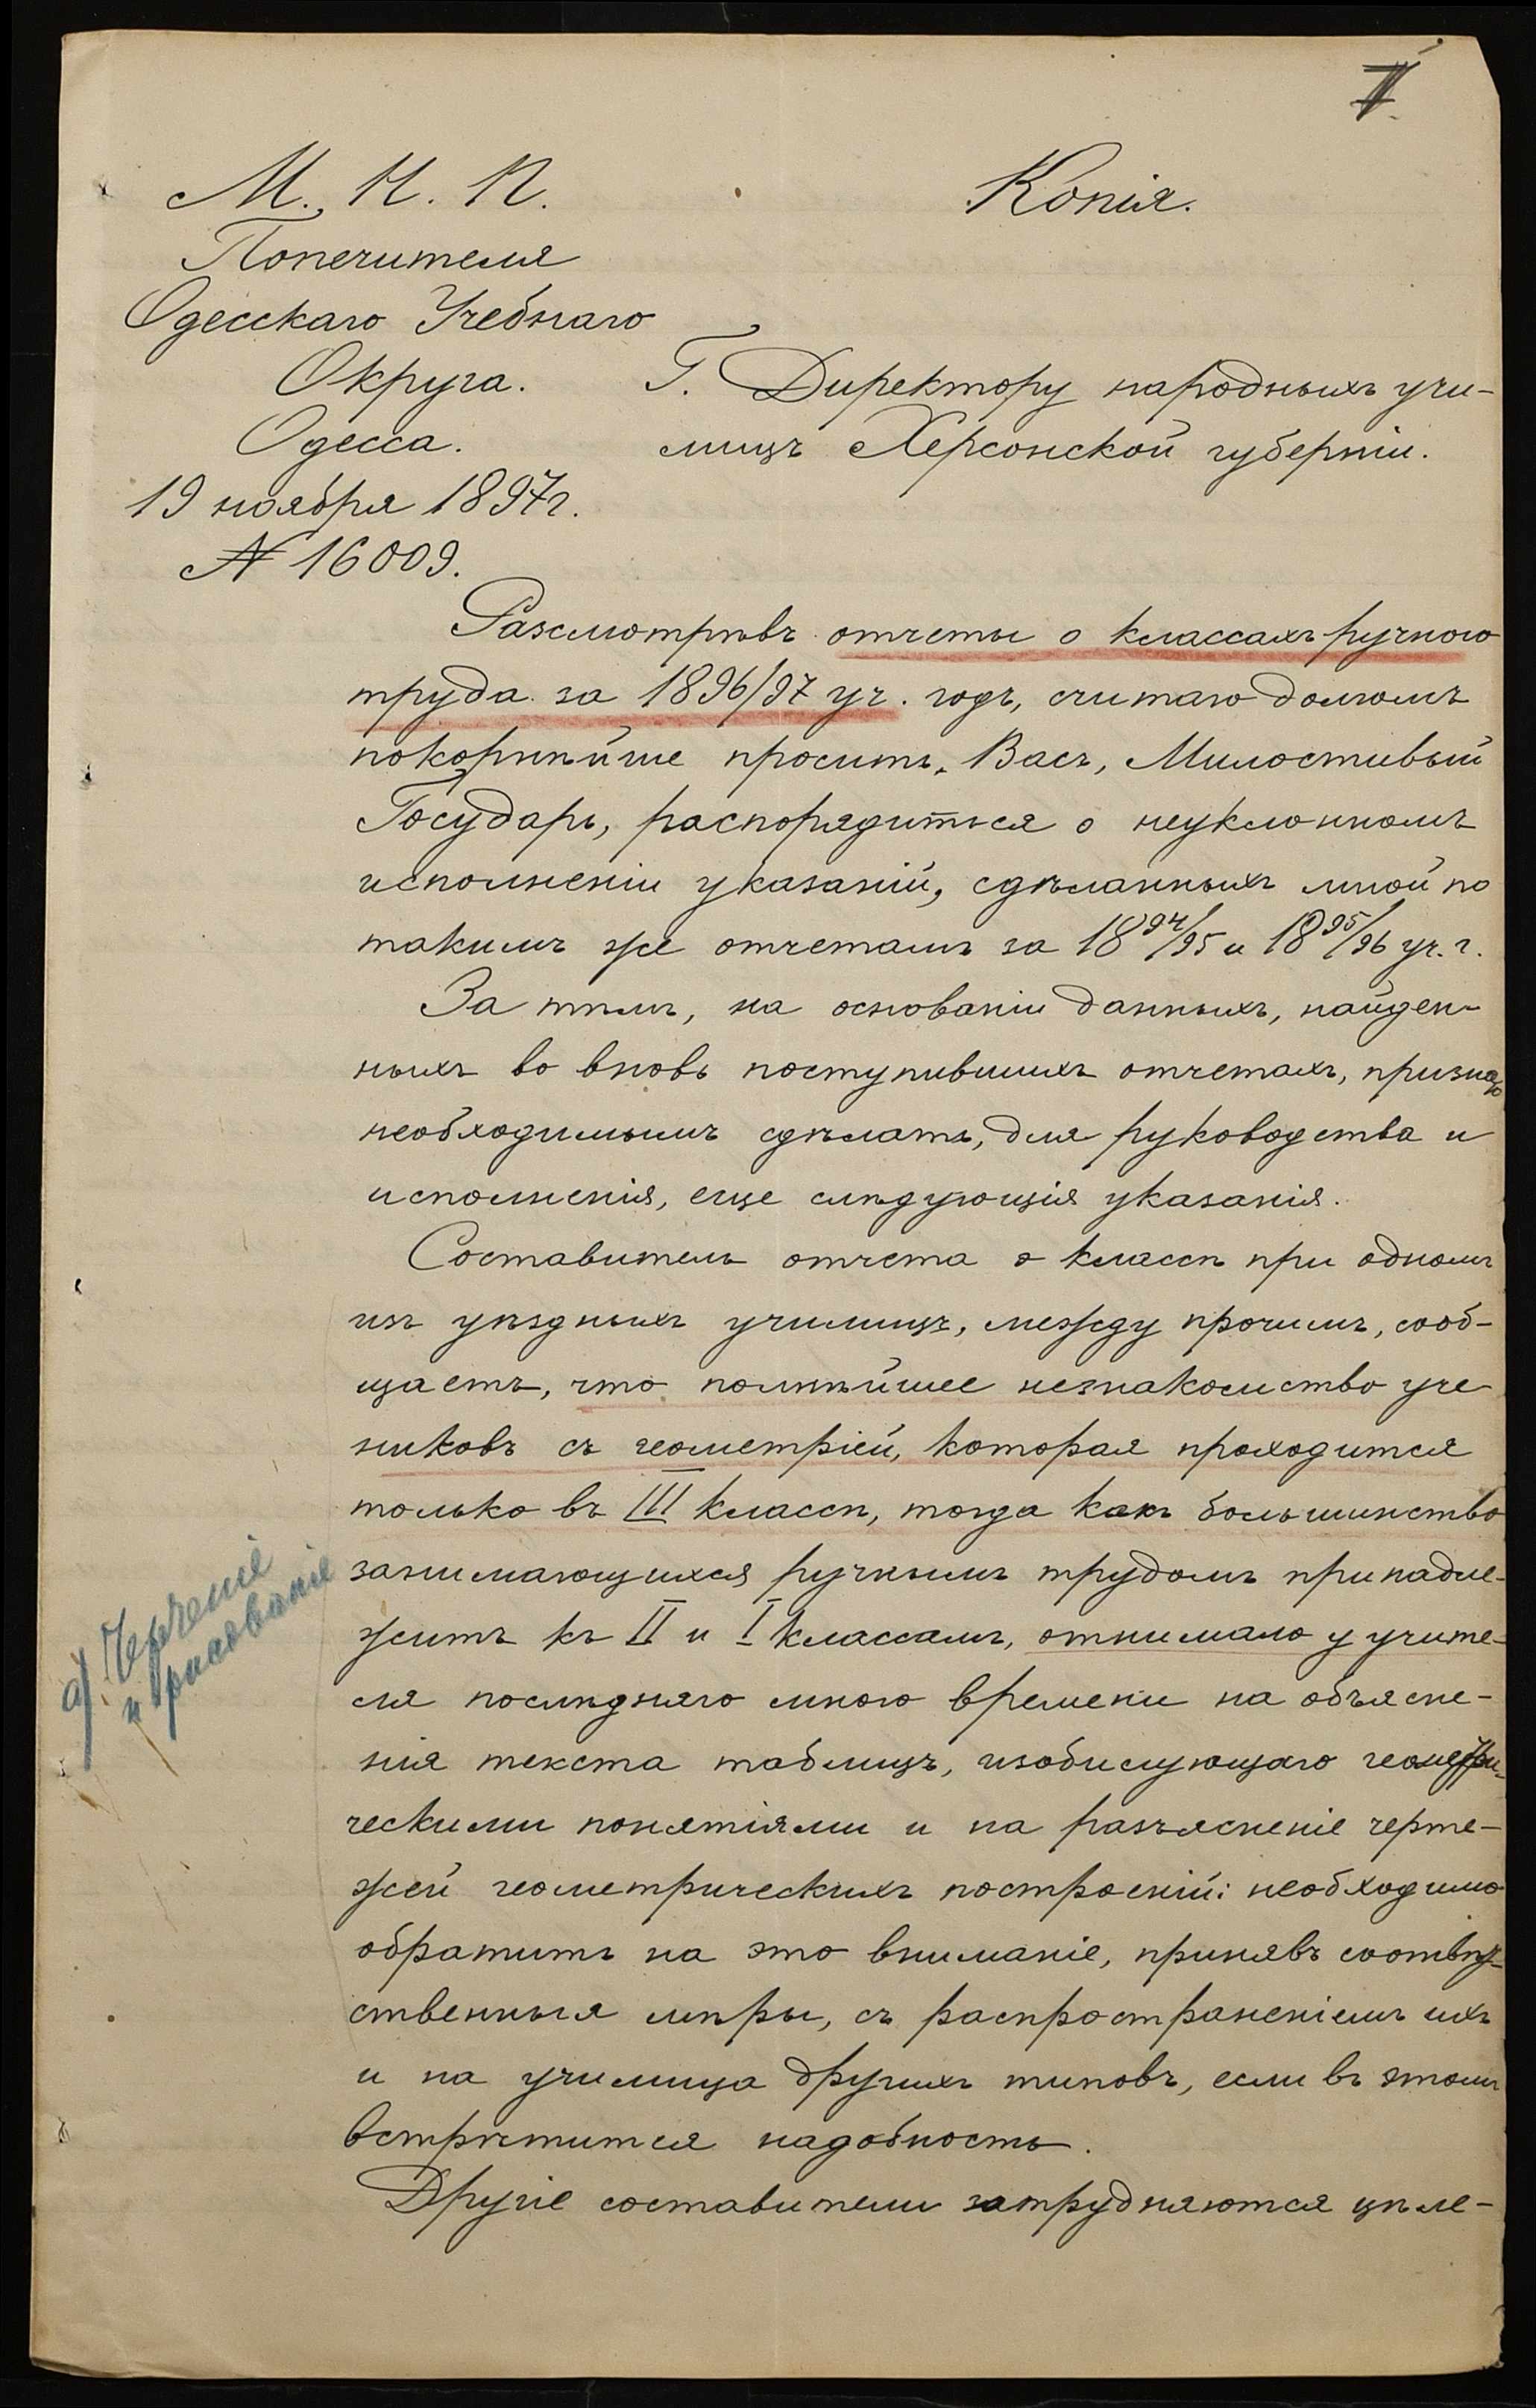 М. Н. П.
Копія.
Попечителя
Одесскаго Учебнаго
Округа.
Г. Директору народныхъ учи-
Одесса.
лищъ Херсонской губерніи.
19 ноября 1897г.
№ 16009.
Разсмотрѣвъ отчеты о классахъ ручного
труда за 1896/97 уч. годъ, считаю долгомъ
покорнѣйше просить, Васъ, Милостивый
Государь, распорядиться о неуклонномъ
исполненіи указаній, сдѣланныхъ мной по
такимъ же отчетамъ за 1894/95 и 1895/96 уч. г.
За тѣмъ, на основаніи данныхъ, найден-
ныхъ во вновь поступившихъ отчетахъ, признаю
необходимымъ сдѣлать, для руководства и
исполненія, еще слѣдующія указанія.
Составитель отчета о классѣ при одномъ
изъ уѣздныхъ училищъ, между прочимъ, сооб-
щаетъ, что полнѣйшее незнакомство уче-
никовъ съ геометріей, которая проходится
только въ III классѣ, тогда какъ большинство
занимающихся ручнымъ трудомъ принадле-
житъ къ II и I классамъ, отнимало у учите-
ля послѣдняго много времени на объясне-
нія текста таблицъ, изобилующаго геометри-
ческими понятіями и на разъясненіе черте-
жей геометрическихъ построеній: необходимо
обратить на это вниманіе, принявъ соотвѣт-
ственныя мѣры, съ распространеніемъ ихъ
и на училища другихъ типовъ, если въ этомъ
встрѣтится надобность.
Другіе составители затрудняются цѣле-
а) Черченіе
и рисованіе